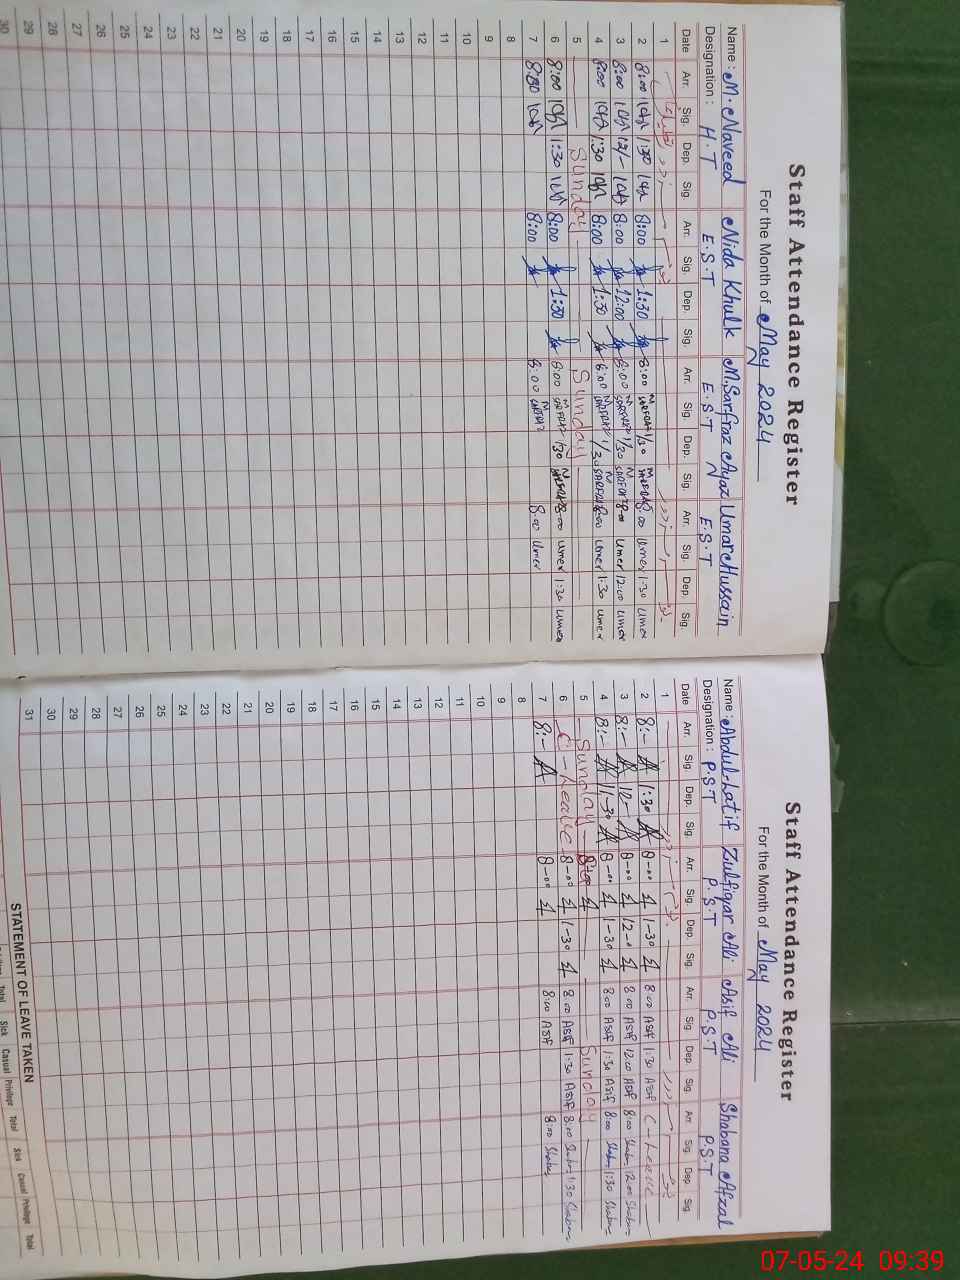 Staff Attendance Register
For the Month of May 2024
Name : M. Naveed Nida Khulk M. Sarfraz Ayaz Umar Hussain
Designation : H.T E.S.T E.S.T E.S.T
Date Arr. Sig. Dep. Sig. Arr. Sig. Dep. Sig. Arr. Sig. Dep. Sig. Arr. Sig. Dep. Sig.
1
2 8:00 1:30 8:00 1:30 8:00 1/30 8:00 Umer 1:30 Umer
3 8:00 12/- 8:00 12:00 8:00 1/30 8:00 Umer 12:00 Umer
4 8:00 1:30 8:00 1:30 8:00 1/30 8:00 Umer 1:30 Umer
5 Sunday Sunday
6 8:00 1:30 8:00 1:30 8:00 1/30 8:00 Umer 1:30 Umer
7 8:00 8:00 8:00 8:00 Umer
8
9
10
11
12
13
14
15
16
17
18
19
20
21
22
23
24
25
26
27
28
29
30
Staff Attendance Register
For the Month of May 2024
Name : Abdul-Latif Zulfiqar Ali Asif Ali Shabana Afzal
Designation : P.S.T P.S.T P.S.T P.S.T
Date Arr. Sig. Dep. Sig. Arr. Sig. Dep. Sig. Arr. Sig. Dep. Sig. Arr. Sig. Dep. Sig.
1
2 8:- 1:30 8-00 1-30 8:00 Asif 1:30 Asif C-Leave
3 8:- 12- 8-00 12-0 8:00 Asif 12:00 Asif 8:00 12:00
4 8:- 1-30 8-00 1-30 8:00 Asif 1:30 Asif 8:00 1:30
5 Sunday Sunday
6 C-Leave 8-00 1-30 8:00 Asif 1:30 Asif 8:00 1:30
7 8:- 8-00 8:00 Asif 8:00
8
9
10
11
12
13
14
15
16
17
18
19
20
21
22
23
24
25
26
27
28
29
30
31
STATEMENT OF LEAVE TAKEN
Total Sick Casual Privilege Total Sick Casual Privilege Total
07-05-24 09:39